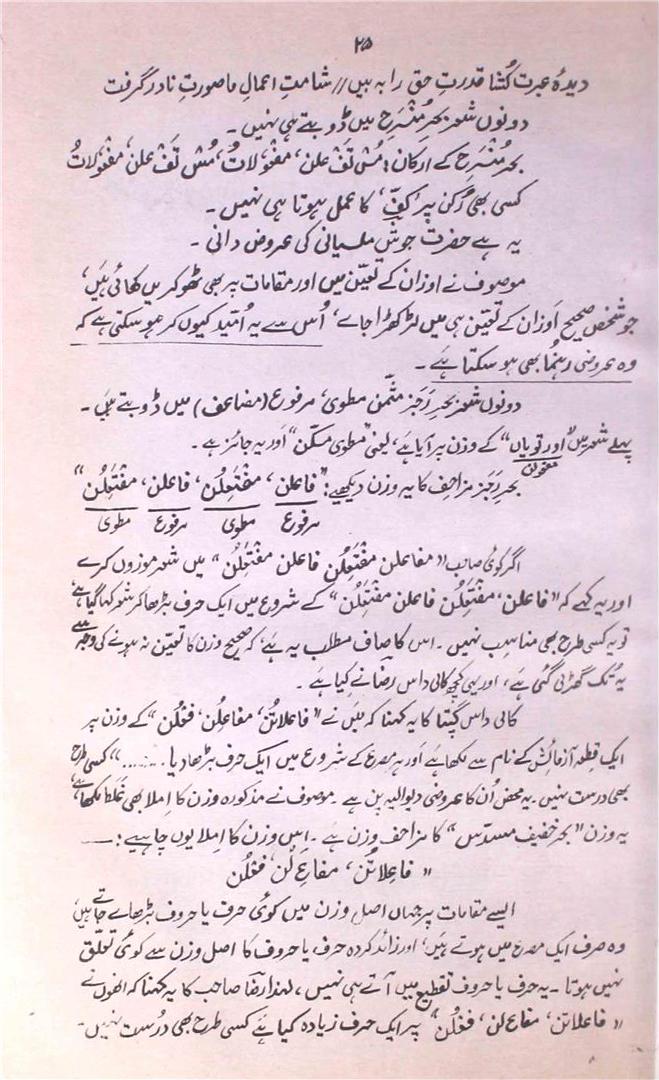 ۲۵
دیدۂ عبرت کُشا قدرتِ حق را بہ بیں // شامتِ اعمالِ ما صورتِ نادر گرفت
دونوں شعر بحرِ مُنْسَرِح میں ڈوبتے ہی نہیں۔
بحرِ مُنْسَرِح کے ارکان: مُس تَفْ علن، مفعولاتُ، مُس تَفْ علن، مفعولاتُ
کسی بھی رُکن پر 'کفّ' کا عمل ہوتا ہی نہیں۔
یہ ہے حضرت جوشؔ ملسیانی کی عروض دانی۔
موصوف نے اوزان کے تعیّن میں اور مقامات پر بھی ٹھوکریں کھائی ہیں،
جو شخص صحیح اَوزان کے تعیّن ہی میں لڑکھڑا جائے، اُس سے یہ اُمّید کیوں کر ہو سکتی ہے کہ
وہ عروضی رہنما بھی ہو سکتا ہے۔
دونوں شعر بحرِ رَجَز مثمّن مطوی، مرفوع (مضاعف) میں ڈوبتے ہیں۔
پہلے شعر میں "اور تو یاں" کے وزن پر آیا ہے، یعنی "مطوی مسکّن" اور یہ جائز ہے۔
مفعولن
بحرِ رَجَز مزاحف کا یہ وزن دیکھیے: "فاعلن، مفْتَعِلُن، فاعلن، مفْتَعِلُن"
مرفوع مطوی مرفوع مطوی
اگر کوئی صاحب "مفاعلن مفْتَعِلُن فاعلن مفْتَعِلُن" میں شعر موزوں کرے
اور یہ کہے کہ "فاعلن، مفْتَعِلُن فاعلن مفْتَعِلُن" کے شروع میں ایک حرف بڑھا کر شعر کہا گیا ہے
تو یہ کسی طرح بھی مناسب نہیں۔ اس کا صاف مطلب یہ ہے، کہ صحیح وزن کا تعیّن نہ ہونے کی وجہ سے
یہ تُک گھڑی گئی ہے، اور یہی کچھ کالی داس رضا نے کیا ہے۔
کالی داس گپتا کا یہ کہنا کہ میں نے "فاعلاتُن، مفاعلُن، فعْلُن" کے وزن پر
ایک قطعہ آزمائش کے نام سے لکھا ہے اور ہر مصرع کے شروع میں ایک حرف بڑھا دیا......" کسی طرح
بھی درست نہیں۔ یہ محض اُن کا عروضی دیوالیہ پن ہے۔ موصوف نے مذکورہ وزن کا اِملا بھی غلط لکھا ہے،
یہ وزن "بحرِ خفیف مسدّس" کا مزاحف وزن ہے۔ اِس وزن کا اِملا یوں چاہیے:—
"فاعِلاتُن، مفاعِ لُن، فعْلُن
ایسے مقامات پر جہاں اصل وزن میں کوئی حرف یا حروف بڑھائے جاتے ہیں،
وہ صرف ایک مصرع میں ہوتے ہیں، اور زائد کردہ حرف یا حروف کا اصل وزن سے کوئی تعلّق
نہیں ہوتا۔ یہ حرف یا حروف تقطیع میں آتے ہی نہیں، لہٰذا رضاؔ صاحب کا یہ کہنا کہ انھوں نے
"فاعلاتن، مفاع لن، فعْلُن" پر ایک حرف زیادہ کیا ہے کسی طرح بھی دُرست نہیں۔